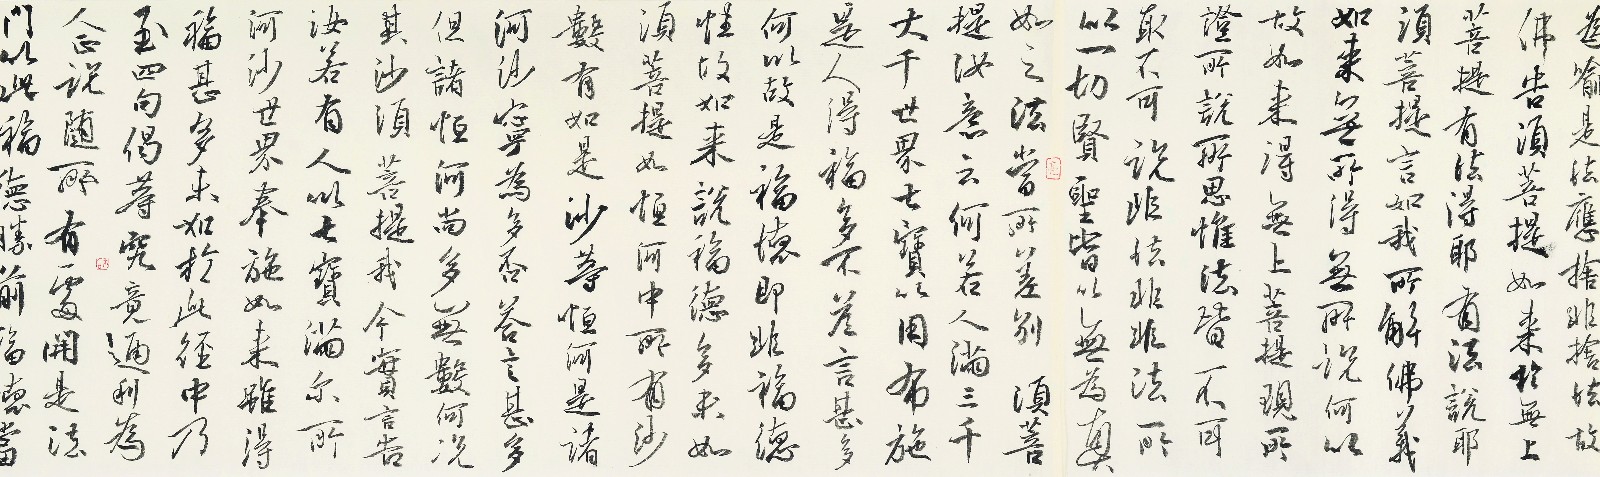 為喻是法應捨非捨法故
佛告須菩提如來於無上
菩提有法得耶有法說耶
須菩提言如我所解佛義
如來無所得無所說何以
故如來得無上菩提現所
證所說所思惟法皆不可
取不可説非法非非法所
以一切賢聖皆以無為真
如之法當所差別 須菩
提汝意云何若人滿三千
大千世界七寶以用布施
是人得福多不答言甚多
何以故是福德即非福德
性故如來說福德多未如
須菩提如恒河中所有沙
數有如是沙等恒河是諸
河沙寧為多否答言甚多
但諸恒河尚多無數何況
其沙須菩提我今實言告
汝若有人以七寶滿尔所
河沙世界奉施如來雖得
福甚多未如於此經中乃
至四句偈等究竟通利為
人正說随所有處開是法
門以此福德勝前福德當